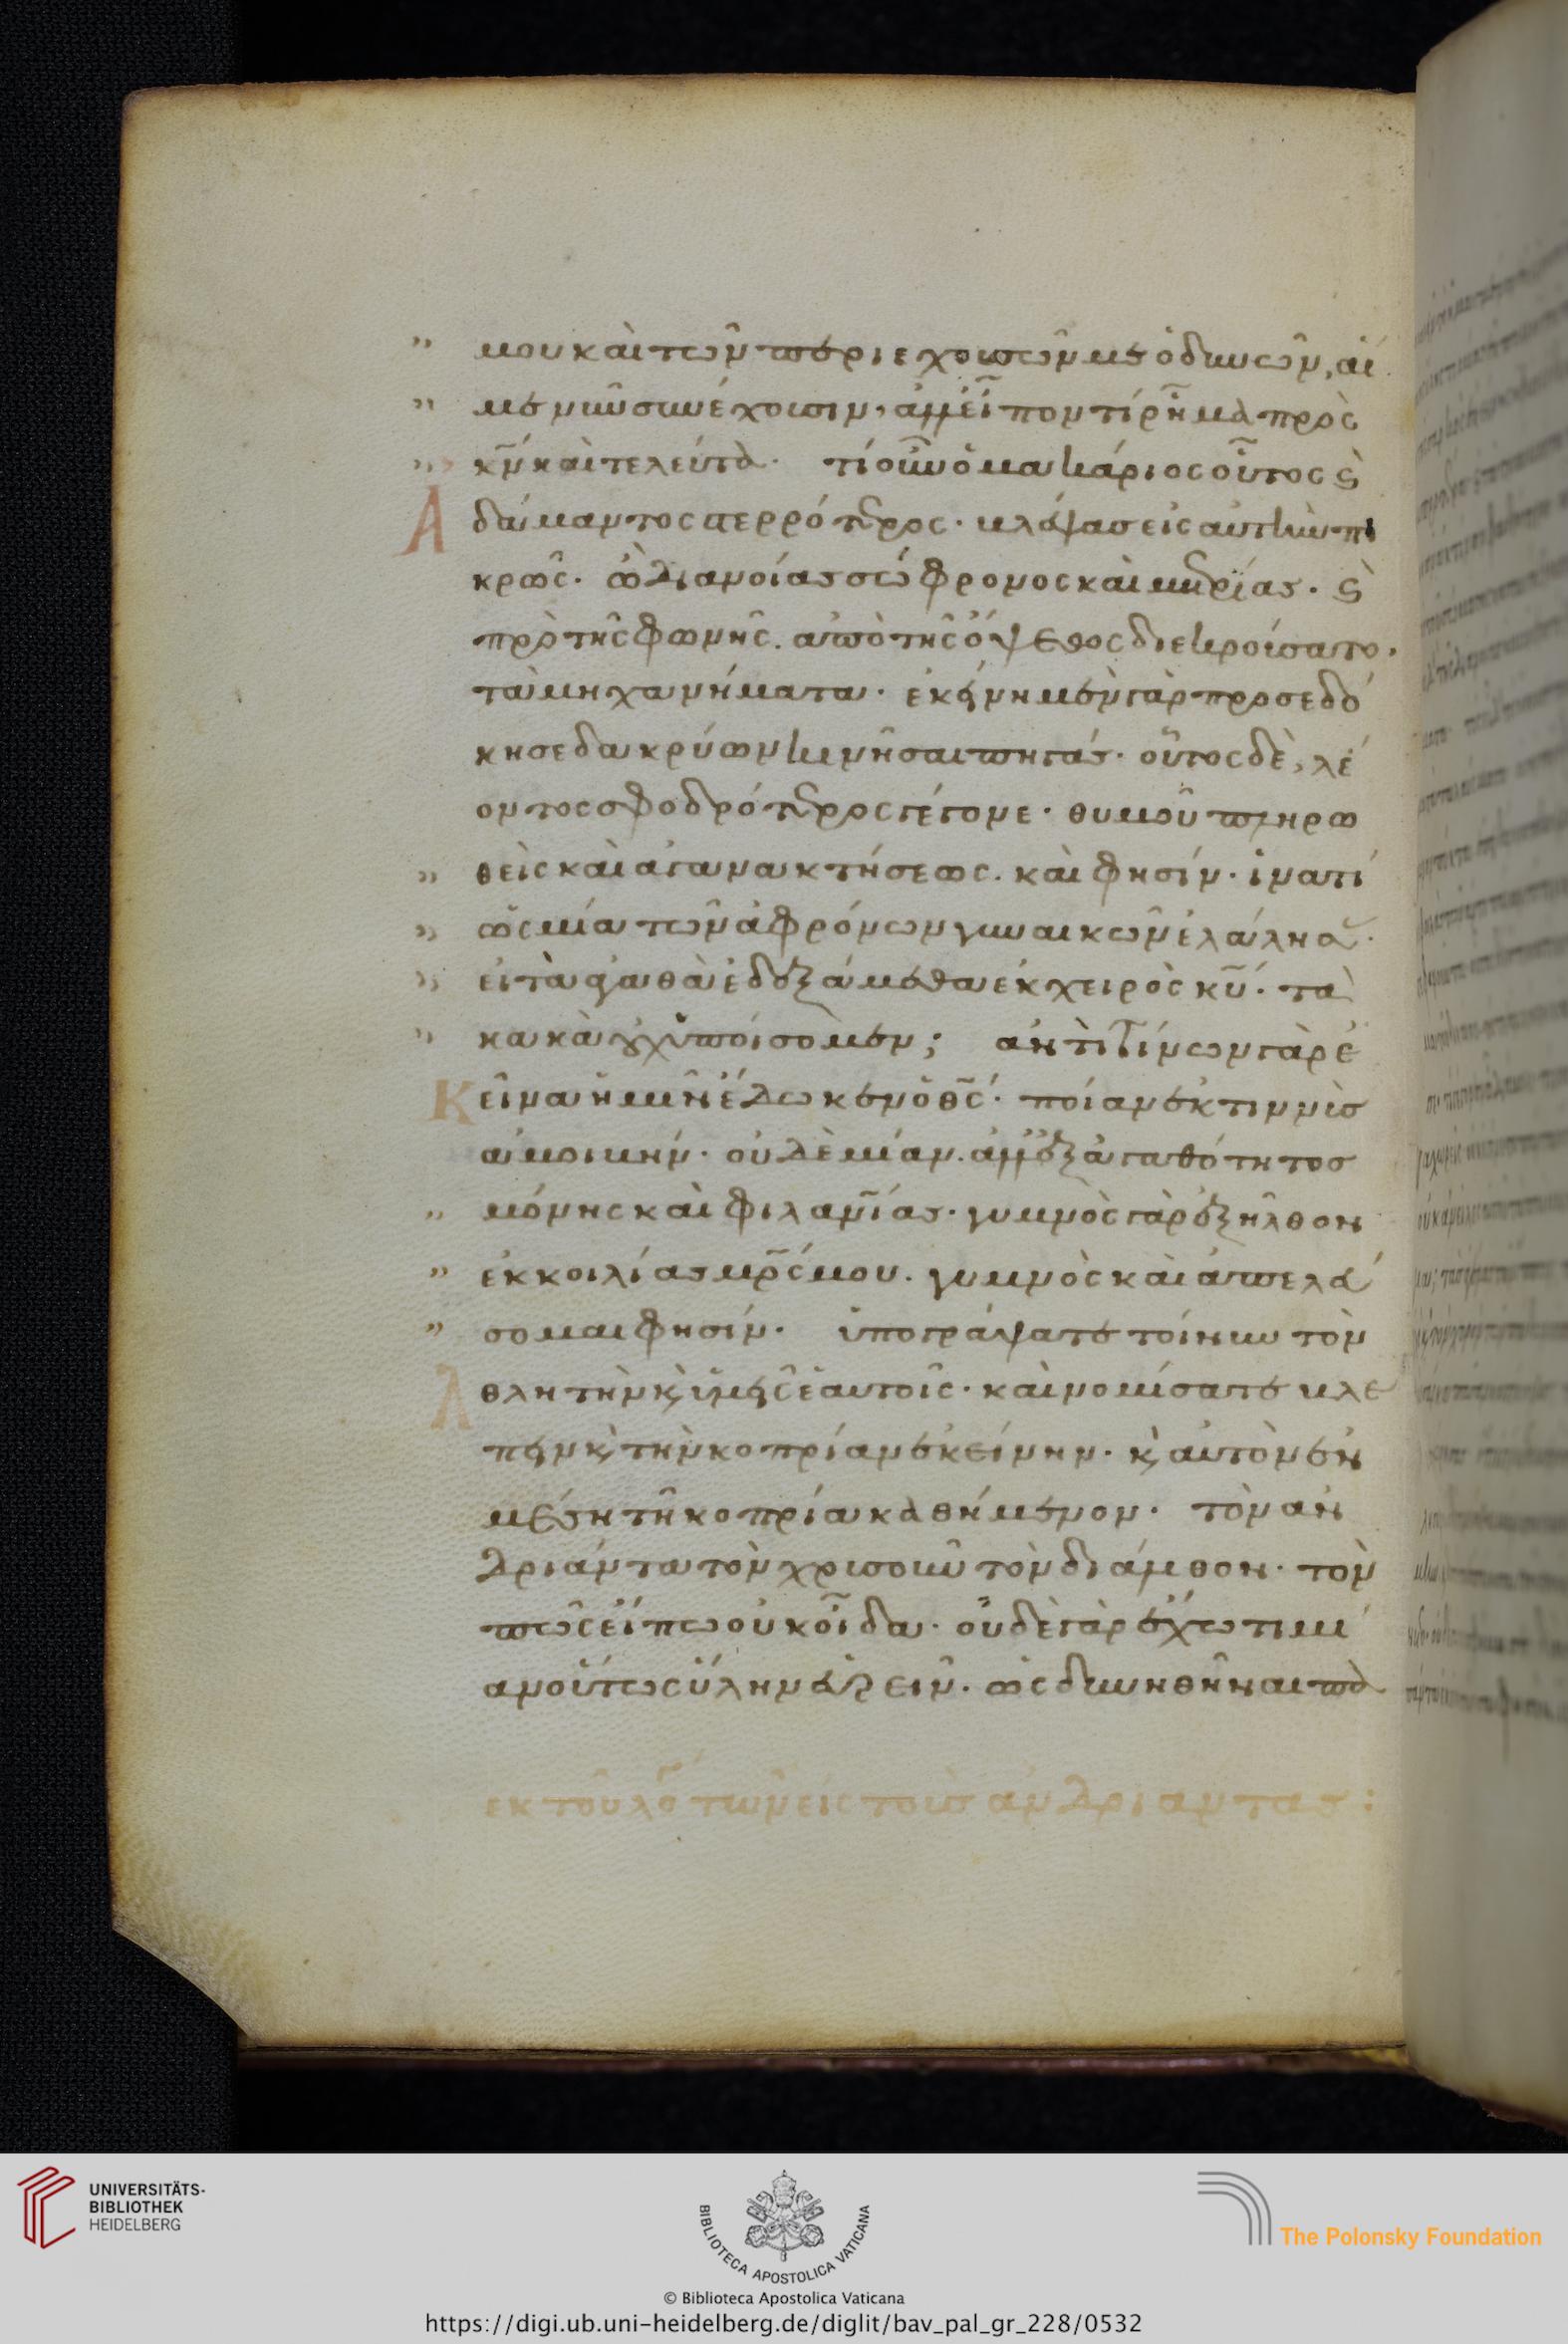 " μου καὶ τῶν περιεχουσῶν με ὀδυνῶν, αἵ
" με νῦν συνέχουσιν, ἀλλ' εἶπον τί ῥῆμα πρὸς
" κν́ καὶ τελεύτα. τί οὖν ὁ μακάριος οὗτος ϗ
ἀδάμαντος στερρότερος. βλέψας εἰς αὐτὴν πι
κρῶς. ὢ διανοίας σώφρονος καὶ ἀνδρείας. ϗ
πρὸ τῆς φωνῆς. ἀπὸ τῆς ὄψεως διεκρούσατο.
τὰ μηχανήματα. ἐκείνη μὲν γὰρ προσεδό
κησε δακρύων κινῆσαι πηγάς. οὗτος δὲ, λέ
οντος σφοδρότερος γέγονε. θυμοῦ πληρω
" θεὶς καὶ ἀγανακτήσεως. καὶ φησίν. ἱνατί
" ὡς μία τῶν ἀφρόνων γυναικῶν ἐλάλησας.
" εἰ τὰ ἀγαθὰ ἐδεξάμεθα ἐκ χειρὸς κυ̅. τὰ
" κακὰ οὐχ ὑποίσομεν; ἀντὶ τίνων γὰρ ἐ
κεῖνα ἡμῖν ἔδωκεν ὁ θς̅. ποίαν ἐκτιννὺς
ἀμοιβήν. οὐδεμίαν. ἀλλ' ἐξ ἀγαθότητος
" μόνης καὶ φιλανίας. γυμνὸς γὰρ ἐξῆλθον
" ἐκ κοιλίας μρ̅ς μου. γυμνὸς καὶ ἀπελεύ
" σομαι φησίν. ὑπογράψατε τοίνυν τὸν
ἀθλητὴν ϗ ὑμεῖς ἑαυτοῖς. καὶ νομίσατε βλέ
πειν ϗ τὴν κοπρίαν ἐκείνην. ϗ αὐτὸν ἐν
μέσῃ τῇ κοπρία καθήμενον. τὸν ἀν
δριάντα τὸν χρυσοῦν τὸν διάλιθον. τὸν
πῶς εἴπω οὐκ οἶδα. οὐδὲ γὰρ ἔχω τιμί
αν οὕτως ὕλην εὑρεῖν. ὡς δυνηθῆναι πα
ἐκ τοῦ λό τῶν εἰς τοὺς ἀνδριάντας:
UNIVERSITÄTS-
BIBLIOTHEK
HEIDELBERG
BIBLIOTECA APOSTOLICA VATICANA
The Polonsky Foundation
© Biblioteca Apostolica Vaticana
https://digi.ub.uni-heidelberg.de/diglit/bav_pal_gr_228/0532